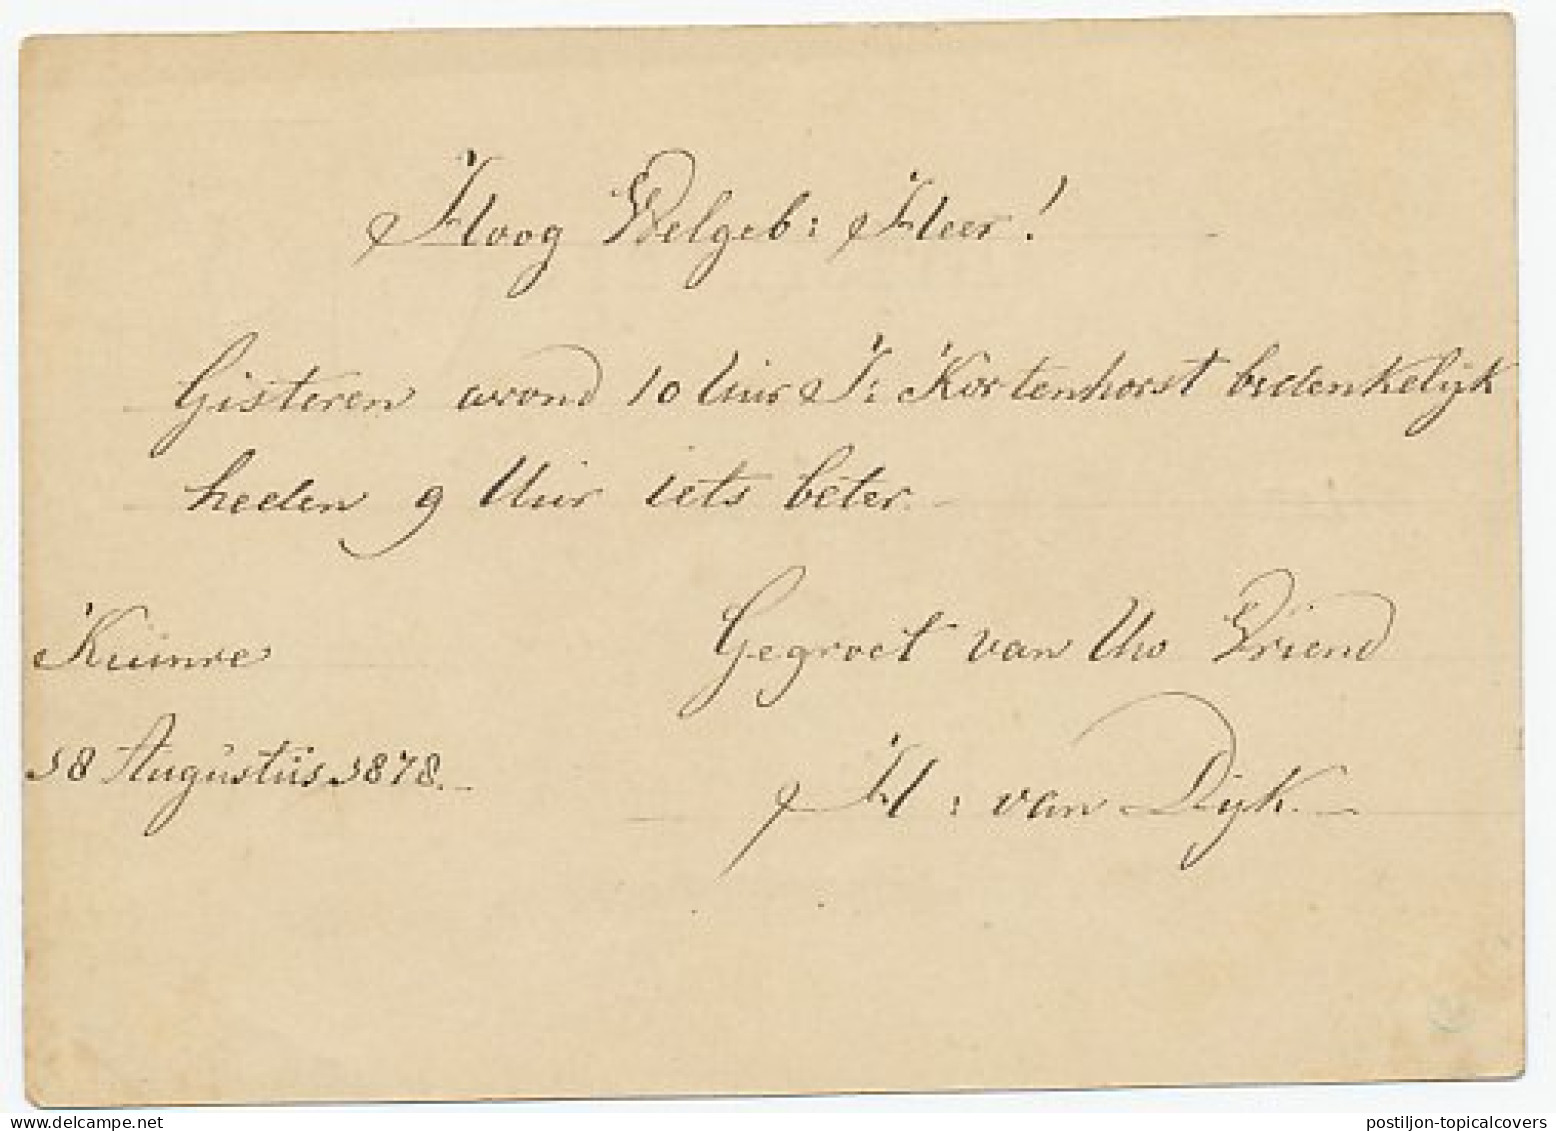 Hoog Welgeb: Heer!
Gisteren avond 10 Uur J: Kortenhorst bedenkelijk
heden 9 Uur iets beter.
Kuinre
Gegroet van Uw Vriend
18 Augustus 1878.
H: van Dijk.
postiljon-topicalcovers